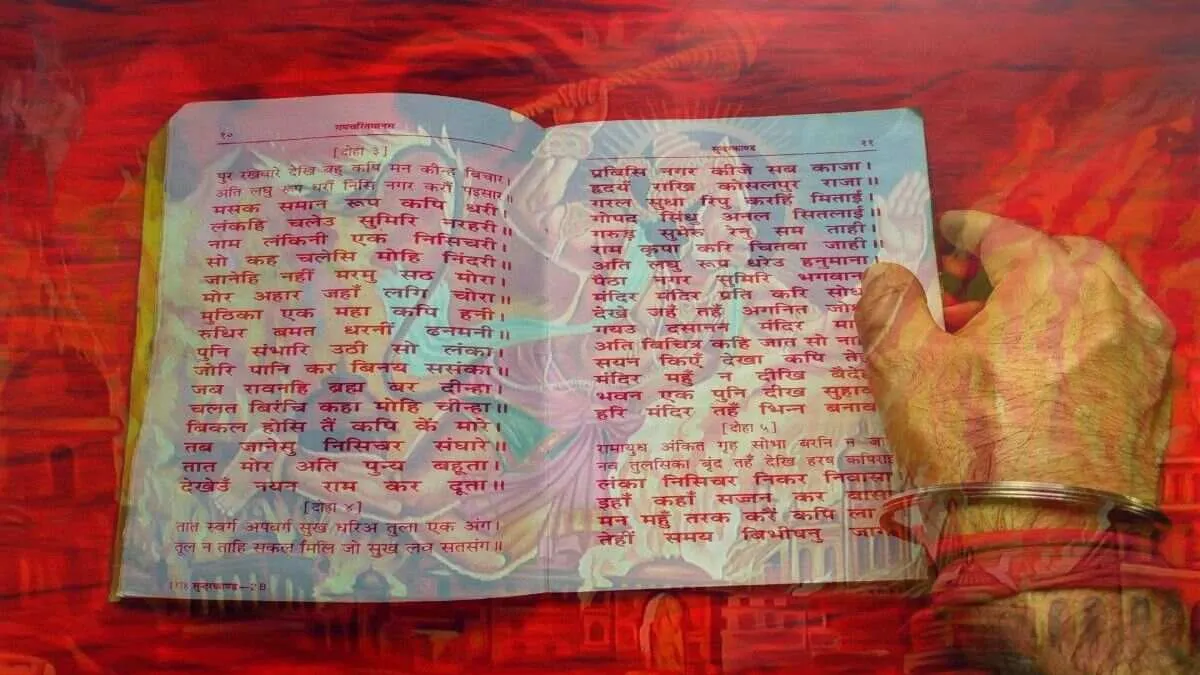 १०
रामचरितमानस
[दोहा ३]
पुर रखवारे देखि बहु कपि मन कीन्ह बिचार।
अति लघु रूप धरौं निसि नगर करौं पइसार॥
मसक समान रूप कपि धरी।
लंकहि चलेउ सुमिरि नरहरी॥
नाम लंकिनी एक निसिचरी।
सो कह चलेसि मोहि निंदरी॥
जानेहि नहीं मरमु सठ मोरा।
मोर अहार जहाँ लगि चोरा॥
मुठिका एक महा कपि हनी।
रुधिर बमत धरनीं ढनमनी॥
पुनि संभारि उठी सो लंका।
जोरि पानि कर बिनय ससंका॥
जब रावनहि ब्रह्म बर दीन्हा।
चलत बिरंचि कहा मोहि चीन्हा॥
बिकल होसि तैं कपि कें मारे।
तब जानेसु निसिचर संघारे॥
तात मोर अति पुन्य बहूता।
देखेउँ नयन राम कर दूता॥
[दोहा ४]
तात स्वर्ग अपबर्ग सुख धरिअ तुला एक अंग।
तूल न ताहि सकल मिलि जो सुख लव सतसंग॥
सुन्दरकाण्ड—2B
सुन्दरकाण्ड
११
प्रबिसि नगर कीजे सब काजा।
हृदयँ राखि कोसलपुर राजा॥
गरल सुधा रिपु करहिं मिताई।
गोपद सिंधु अनल सितलाई॥
गरुड़ सुमेरु रेनु सम ताही।
राम कृपा करि चितवा जाही॥
अति लघु रूप धरेउ हनुमाना।
पैठा नगर सुमिरि भगवाना
मंदिर मंदिर प्रति करि सोध
देखे जहँ तहँ अगनित जो
गयउ दसानन मंदिर मा
अति बिचित्र कहि जात सो ना
सयन किएँ देखा कपि ते
मंदिर महुँ न दीखि बैदे
भवन एक पुनि दीख सुहाव
हरि मंदिर तहँ भिन्न बनाव
[दोहा ५]
रामायुध अंकित गृह सोभा बरनि न जा
नव तुलसिका बृंद तहँ देखि हरष कपिरा
लंका निसिचर निकर निवासा
इहाँ कहाँ सज्जन कर बासा
मन महुँ तरक करैं कपि ला
तेहीं समय बिभीषनु जा